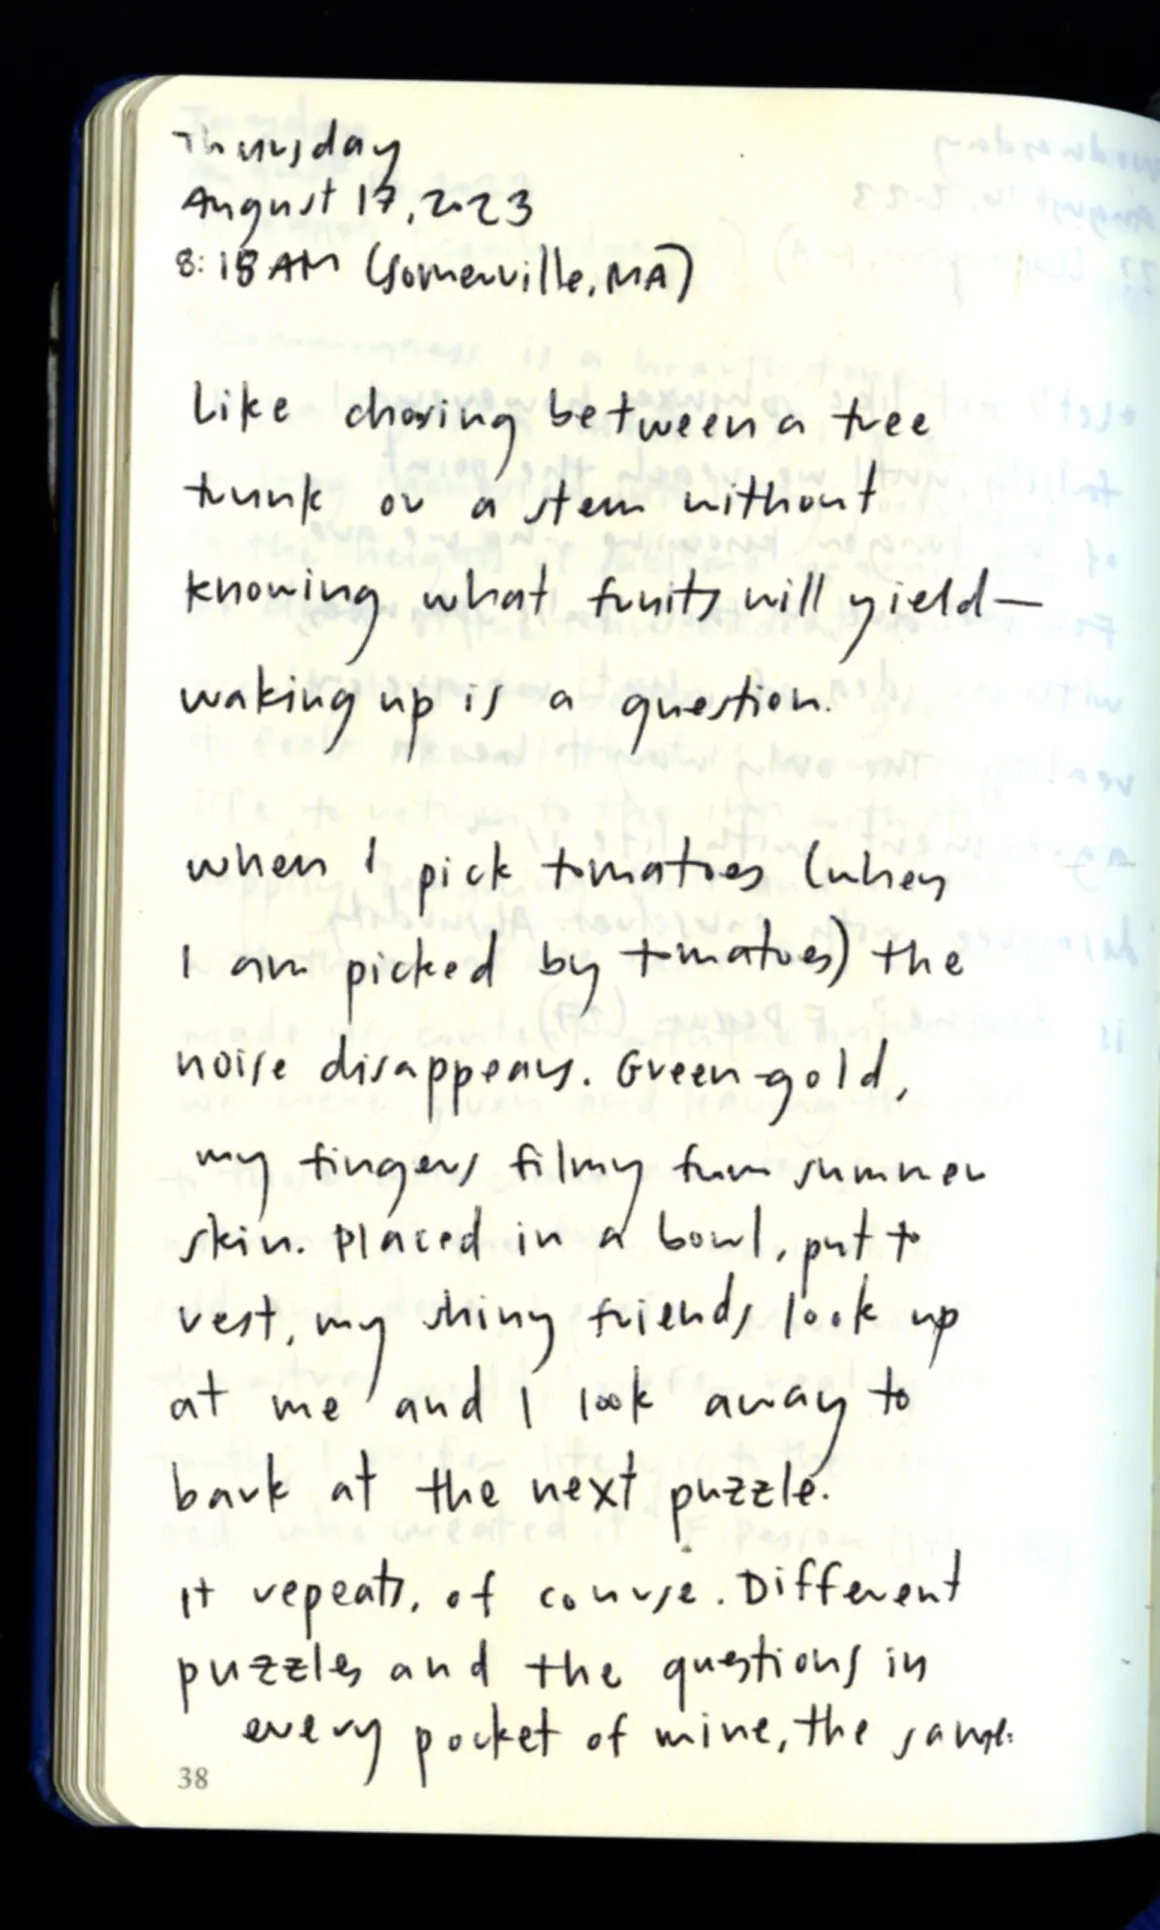 Thursday
August 17, 2023
8:18 AM (Somerville, MA)
Like chosing between a tree
trunk or a stem without
knowing what fruits will yield—
waking up is a question.
when I pick tomatoes (when
I am picked by tomatoes) the
noise disappears. Green-gold,
my fingers filmy from summer
skin. Placed in a bowl, put to
rest, my shiny friends look up
at me and I look away to
bark at the next puzzle.
It repeats, of course. Different
puzzles and the questions in
every pocket of mine, the same.
38